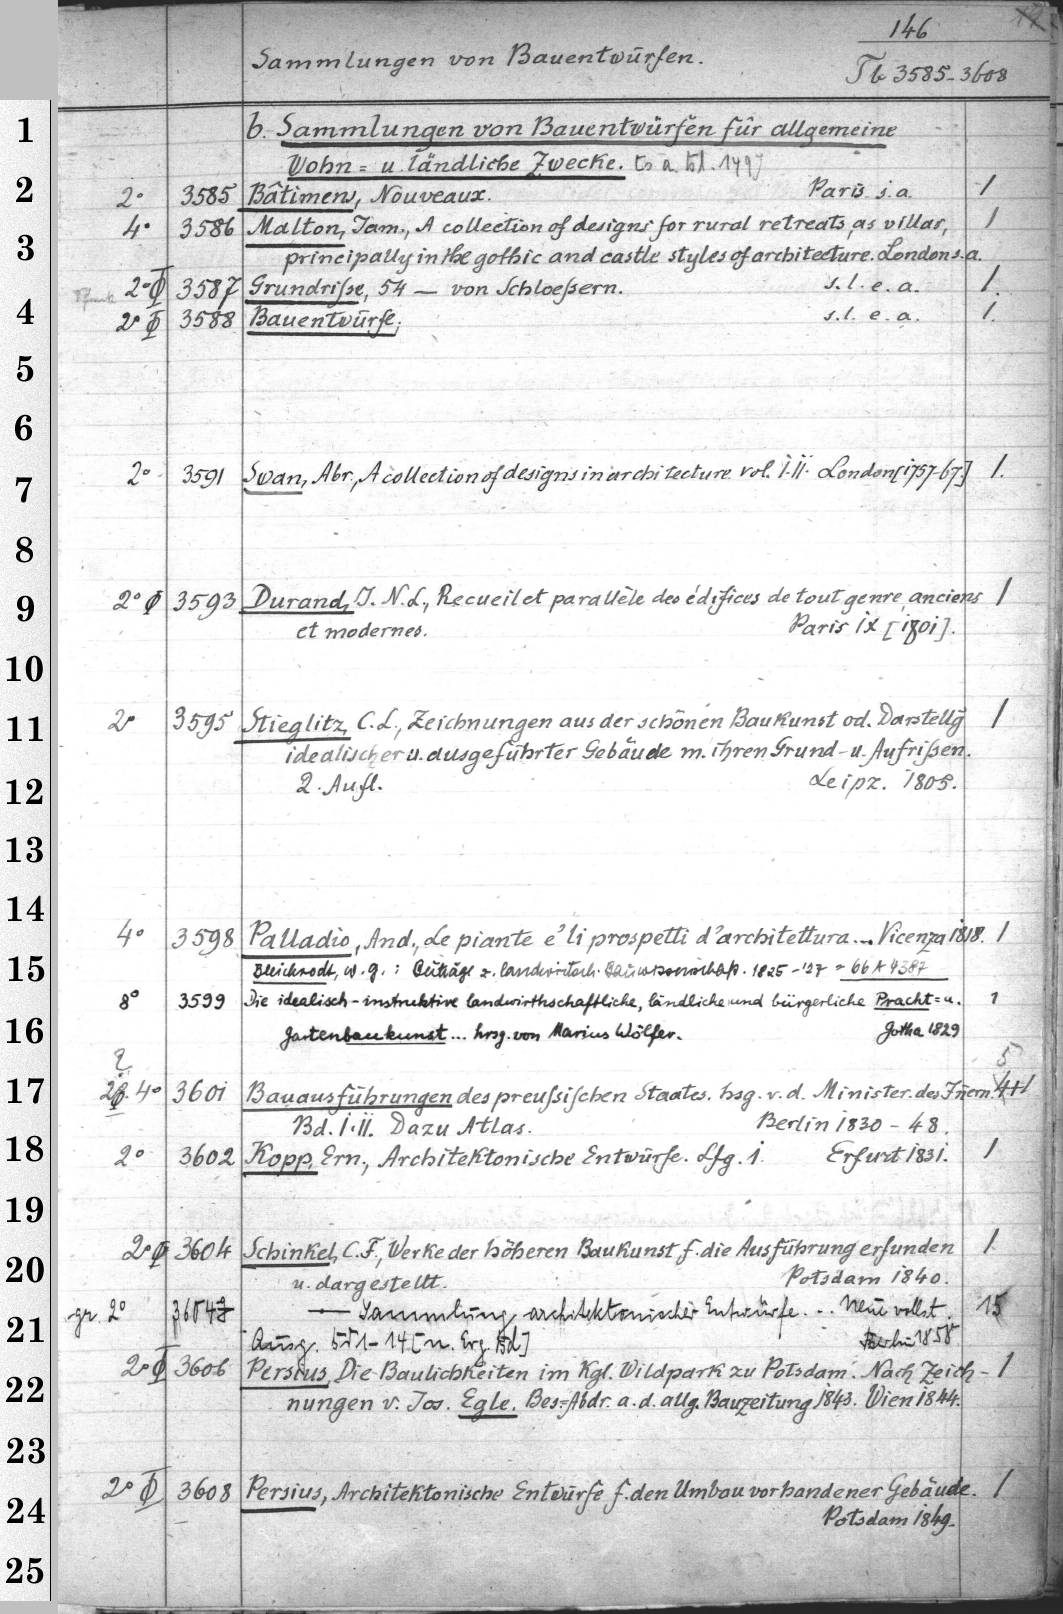 146
Sammlungen von Bauentwürfen.
Tb 3585-3608
1
b. Sammlungen von Bauentwürfen für allgemeine
Wohn= u. ländliche Zwecke.
2
2° 3585 Bâtimens, Nouveaux. Paris s.a. 1
4° 3586 Malton, Jam., A collection of designs for rural retreats, as villas, 1
3
principally in the gothic and castle styles of architecture. London s.a.
2° 3587 Grundriſse, 54 — von Schloeßern. s.l. e. a. 1.
4
2° 3588 Bauentwürfe. s.l. e. a. 1.
5
6
7
2° 3591 Swan, Abr., A collection of designs in architecture. vol. I.II. London [1757-67.] 1.
8
9
2° 3593 Durand, J. N. L., Recueil et parallèle des édifices de tout genre, anciens 1
et modernes. Paris IX [1801].
10
11
2° 3595 Stieglitz, C. L., Zeichnungen aus der schönen Baukunst od. Darstellg 1
idealischer u. ausgeführter Gebäude m. ihren Grund- u. Aufrißen.
12
2. Aufl. Leipz. 1805.
13
14
4° 3598 Palladio, And., Le piante e' li prospetti d'architettura... Vicenza 1818. 1
15
Bleichrodt, W. G.: Beiträge z. landwirtsch. Bauwissenschaft. 1825-'27 = 66 A 4387
8° 3599 Die idealisch-instruktive landwirthschaftliche, ländliche und bürgerliche Pracht= u. 1
16
Gartenbaukunst ... hrsg. von Marius Wölfer. Gotha 1829
5
17
4° 3601 Bauausführungen des preuſsiſchen Staates. hsg. v. d. Minister. des Innern. 4+1
Bd. I.II. Dazu Atlas. Berlin 1830-48.
18
2° 3602 Kopp, Ern., Architektonische Entwürfe. Lfg. 1. Erfurt 1831. 1
19
20
2° 3604 Schinkel, C. F., Werke der höheren Baukunst, f. die Ausführung erfunden 1
u. dargestellt. Potsdam 1840.
gr. 2° 3604 — Sammlung architektonischer Entwürfe. ... Neue vollst. 15
21
Ausg. 1-14 [u. Erg. Bd] Berlin 1858
2° 3606 Persius, Die Baulichkeiten im Kgl. Wildpark zu Potsdam. Nach Zeich- 1
22
nungen v. Jos. Egle. Bes.=Abdr. a. d. allg. Bauzeitung 1843. Wien 1844.
23
24
2° 3608 Persius, Architektonische Entwürfe f. den Umbau vorhandener Gebäude. 1
Potsdam 1849.
25